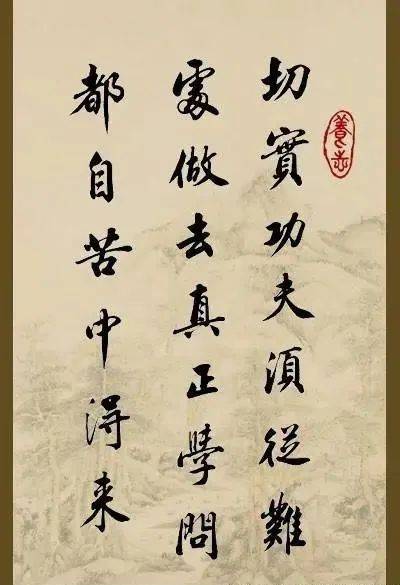 養志
切實功夫須從難
處做去真正學問
都自苦中得来